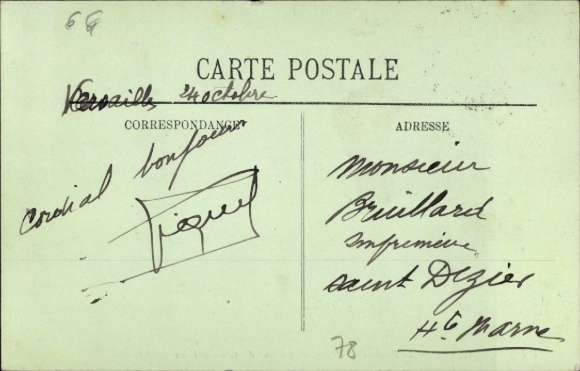 6 G
CARTE POSTALE
Versailles 24 octobre
CORRESPONDANCE
Cordial bonjour
ADRESSE
Monsieur
Bruillard
Imprimeur
Saint Dizier
Hte Marne
78